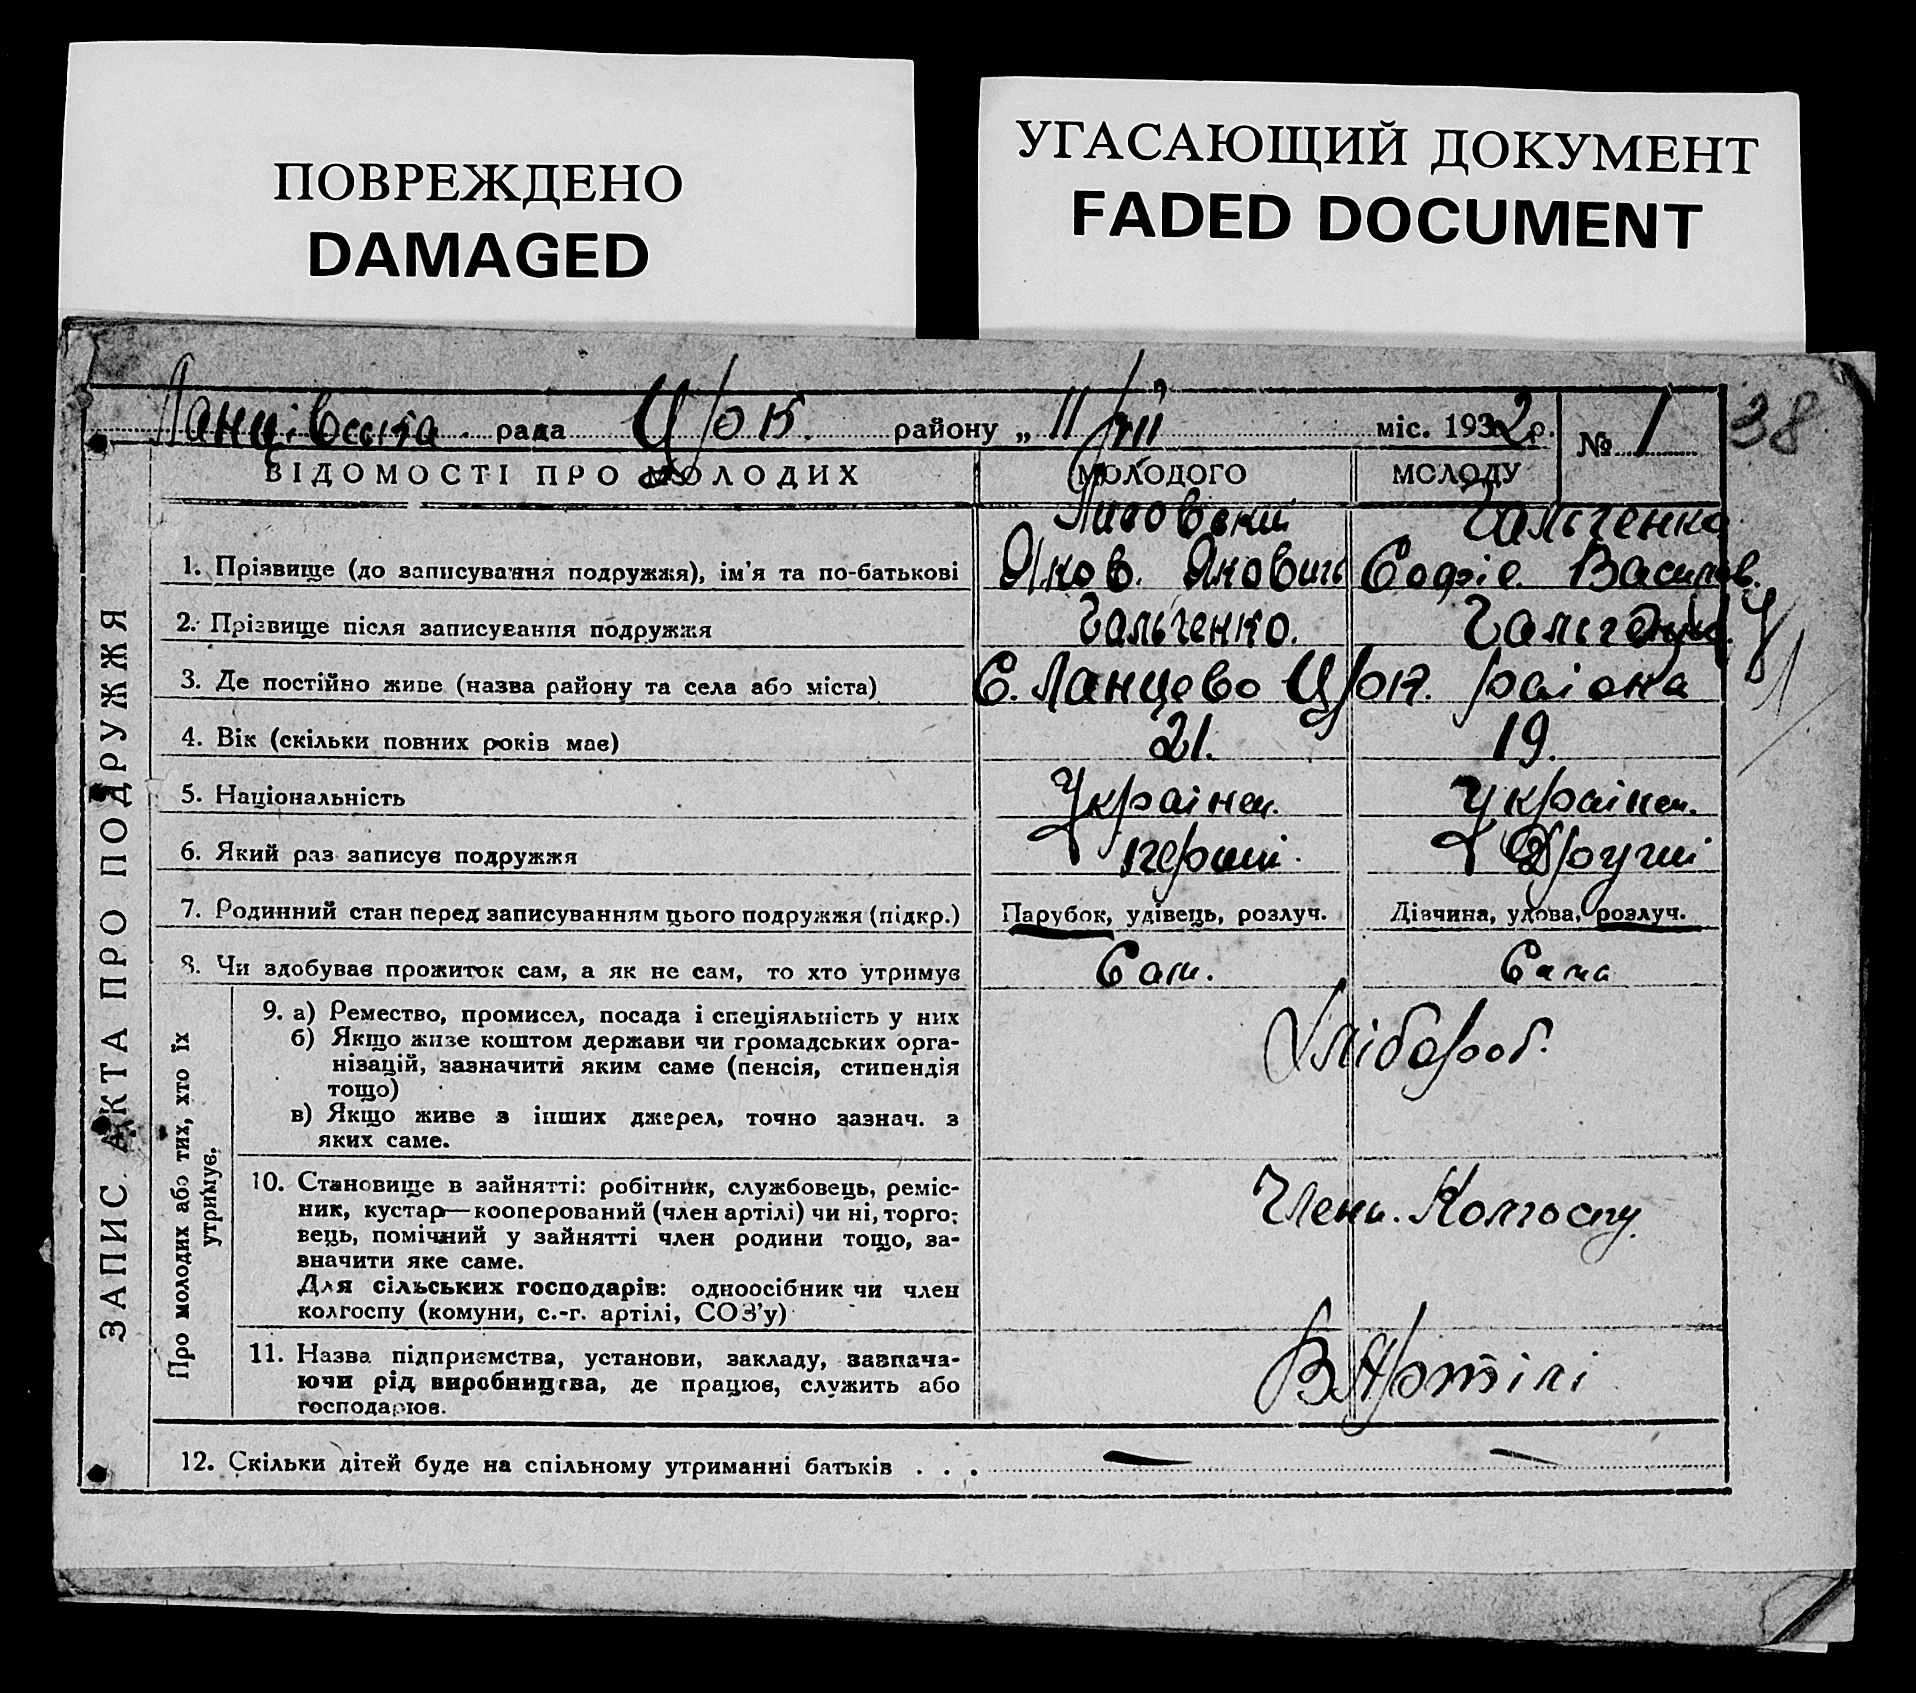 ПОВРЕЖДЕНО
DAMAGED
УГАСАЮЩИЙ ДОКУМЕНТ
FADED DOCUMENT
рада району „ 11 міс. 1932 р. № 1
38
ВІДОМОСТІ ПРО МОЛОДИХ МОЛОДОГО МОЛОДУ
Гальченко
1. Прізвище (до записування подружжя), ім'я та по-батькові Яков. Якович Софіє Васил.
2. Прізвище після записування подружжя Гальченко. Гальченко.
3. Де постійно живе (назва району та села або міста) С. Ланцево раіона
4. Вік (скільки повних років має) 21. 19.
5. Національність Украінец. Украінец.
6. Який раз записує подружжя перші Другиі
7. Родинний стан перед записуванням цього подружжя (підкр.) Парубок, удівець, розлуч. Дівчина, удова, розлуч.
8. Чи здобуває прожиток сам, а як не сам, то хто утримує Сам. Сама
ЗАПИС АКТА ПРО ПОДРУЖЖЯ
Про молодих або тих, хто їх
утримує.
9. а) Ремество, промисел, посада і спеціяльність у них
б) Якщо живе коштом держави чи громадських орга-
нізацій, зазначити яким саме (пенсія, стипендія
тощо)
в) Якщо живе з інших джерел, точно зазнач. з
яких саме.
Хлібороб.
10. Становище в зайнятті: робітник, службовець, реміс-
ник, кустар—кооперований (член артілі) чи ні, торго-
вець, помічний у зайнятті член родини тощо, за-
значити яке саме.
Для сільських господарів: одноосібник чи член
колгоспу (комуни, с.-г. артілі, СОЗ'у)
Члени. Колгоспу.
11. Назва підприємства, установи, закладу, зазнача-
ючи рід виробництва, де працює, служить або
господарює.
В Артілі
12. Скільки дітей буде на спільному утриманні батьків . . . — —